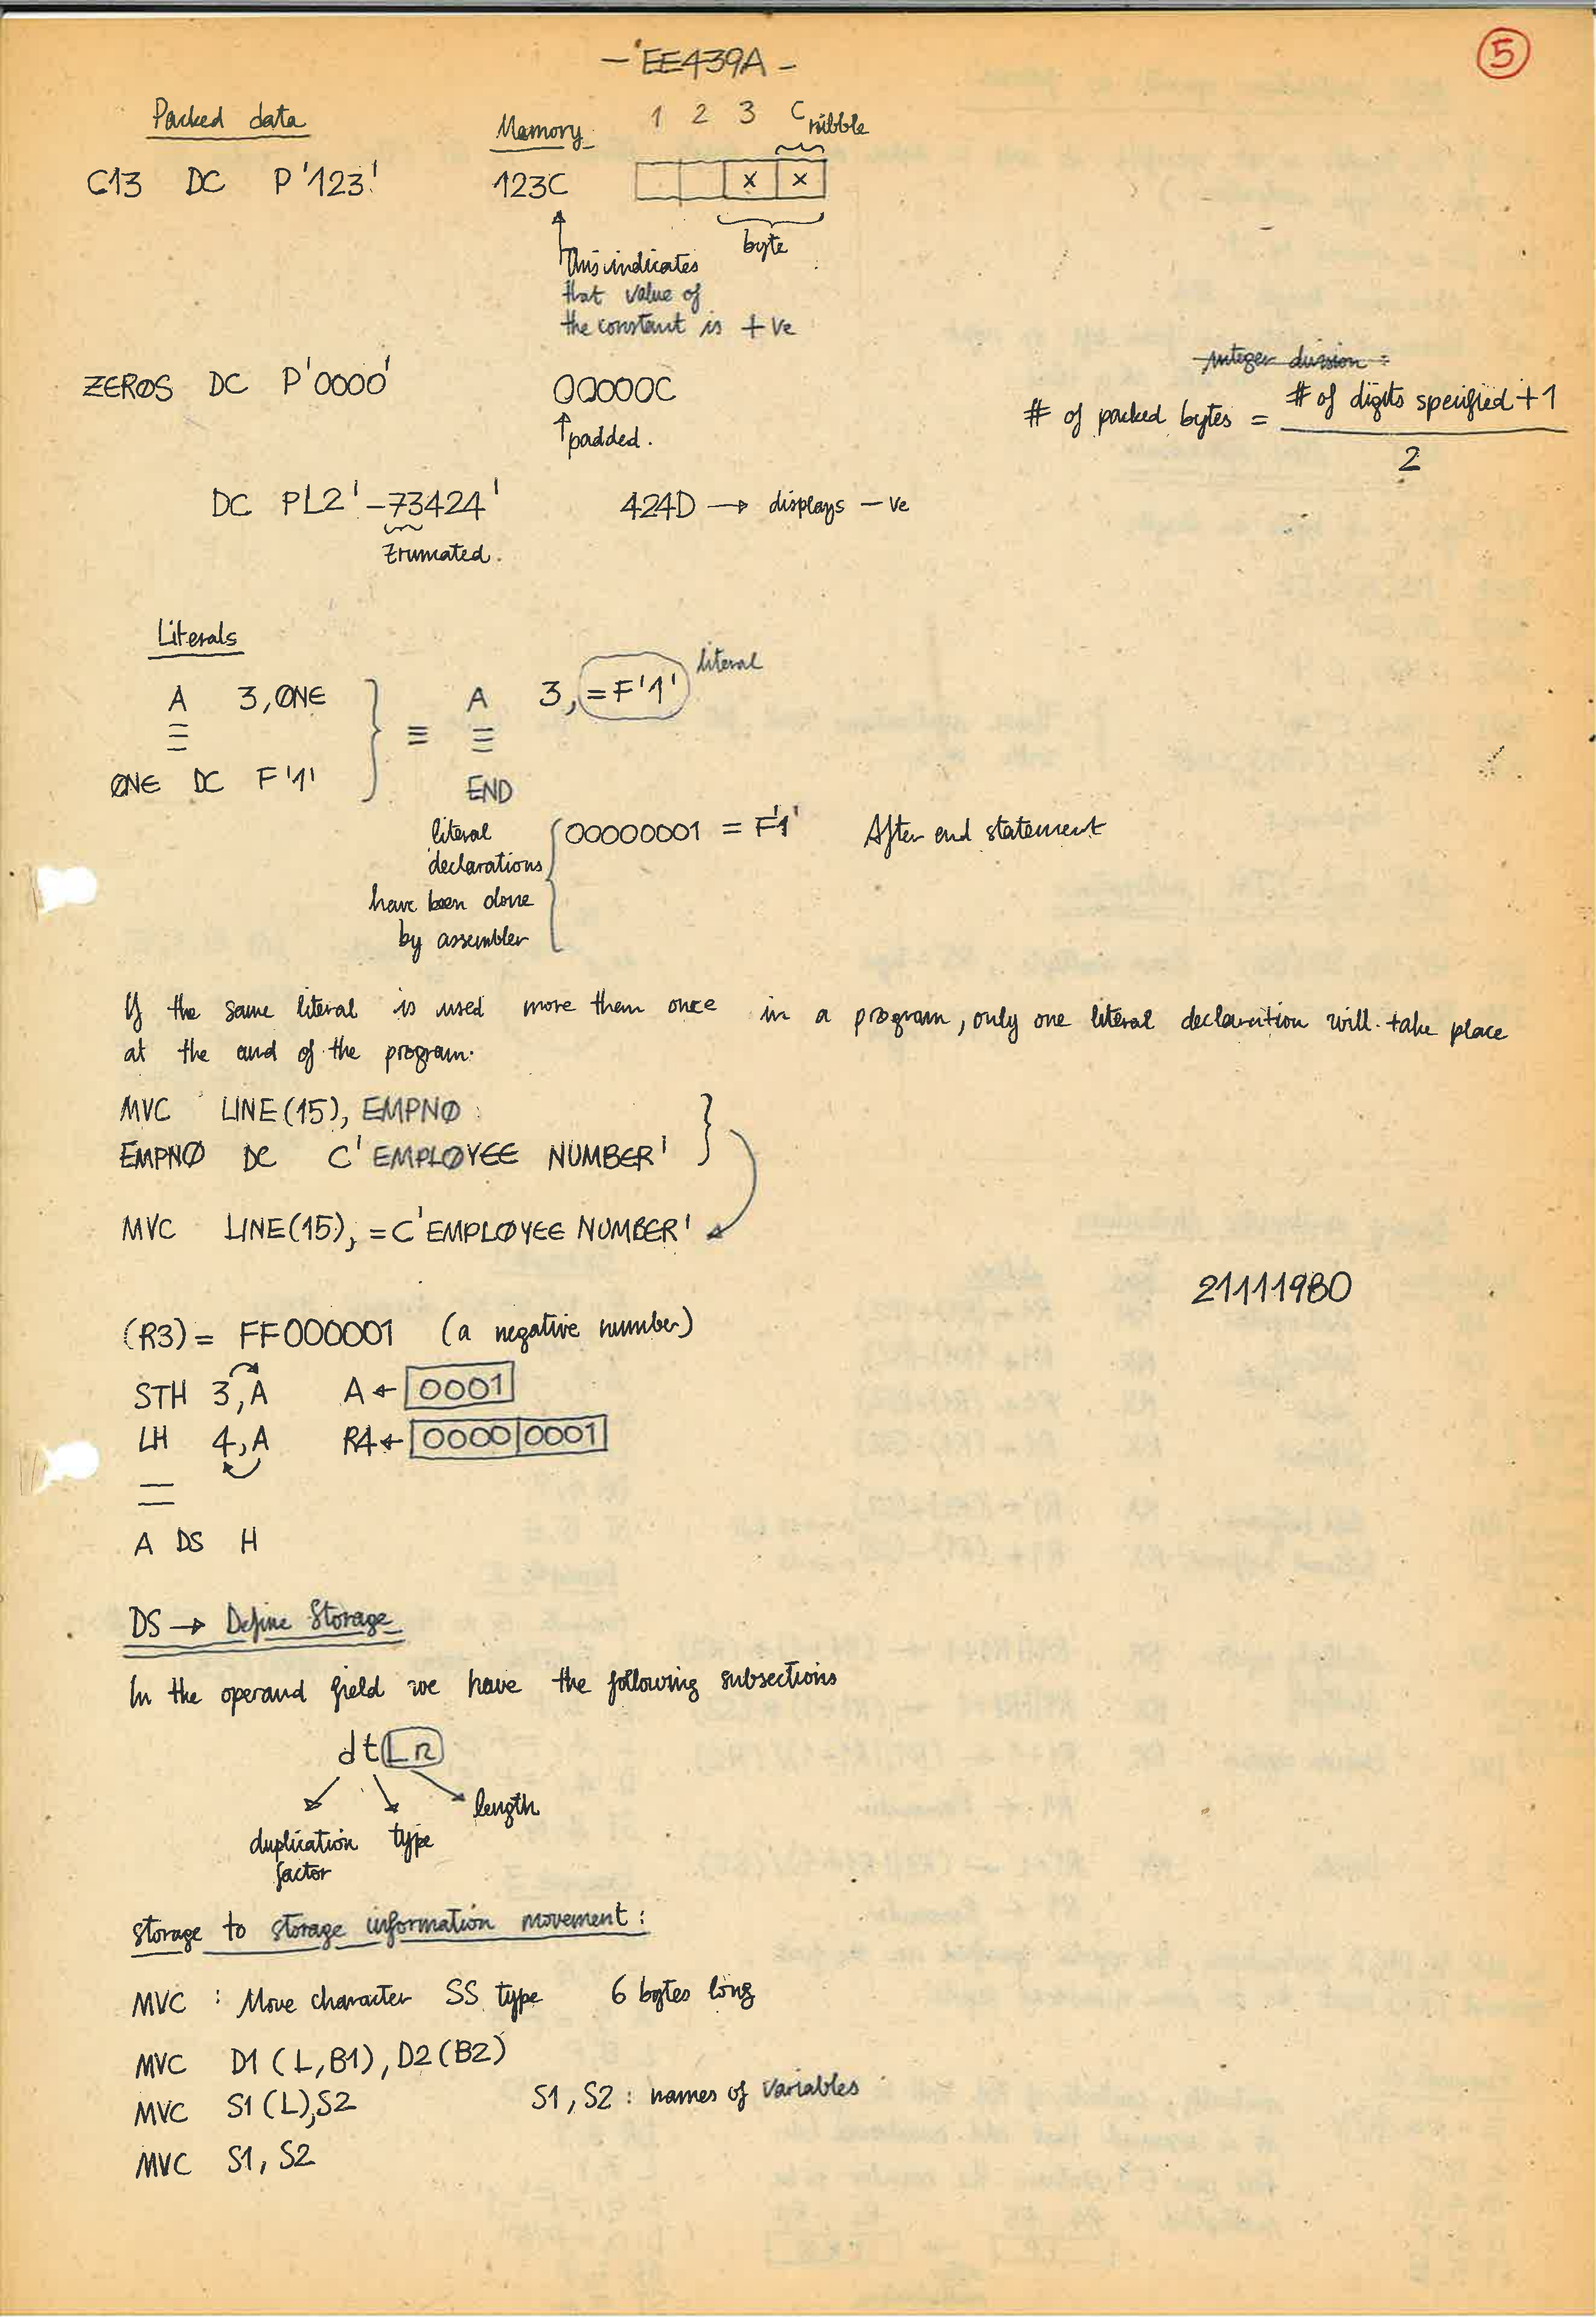 - EE439A -
5
Packed data
Memory
1 2 3 C
nibble
C13 DC P'123'
123C
x x
byte
This indicates
that value of
the constant is +ve
integer division =
ZEROS DC P'0000'
00000C
# of packed bytes = # of digits specified + 1
2
padded.
DC PL2'-73424'
424D → displays -ve
trunated.
Literals
literal
A 3,ONE
≡ A 3,=F'1'
ONE DC F'1'
END
literal
declarations
have been done
by assembler
00000001 = F'1'
After end statement
If the same literal is used more them once in a program, only one literal declaration will take place
at the end of the program.
MVC LINE(15), EMPNO
EMPNO DC C'EMPLOYEE NUMBER'
MVC LINE(15), =C'EMPLOYEE NUMBER'
21111980
(R3) = FF000001 (a negative number)
STH 3,A A ← 0001
LH 4,A R4 ← 0000 0001
A DS H
DS → Define Storage
In the operand field we have the following subsections
dtLn
length
duplication
factor
type
Storage to storage information movement:
MVC : Move character SS type 6 bytes long
MVC D1(L,B1), D2(B2)
MVC S1(L),S2
S1, S2 : names of variables
MVC S1, S2